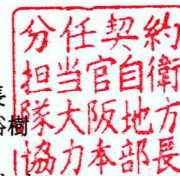 分任契約
担当官自衛
隊大阪地方
協力本部長
長
樹